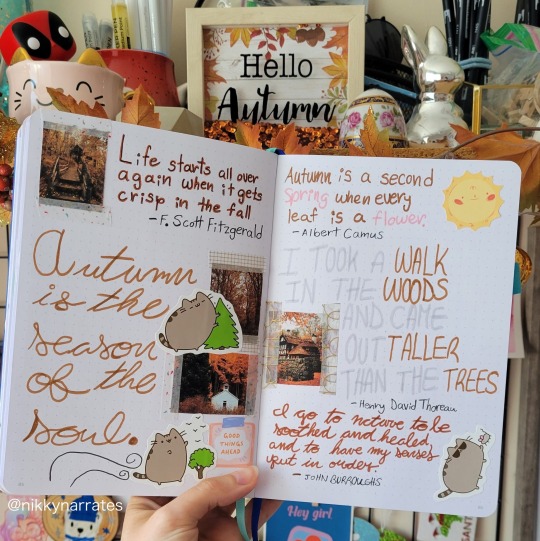 Hello
Autumn
Life starts all over
again when it gets
crisp in the fall
-F. Scott Fitzgerald
Autumn
is the
season
of the
soul.
GOOD
THINGS
AHEAD
Autumn is a second
Spring when every
leaf is a flower.
-Albert Camus
I TOOK A WALK
IN THE WOODS
AND CAME
OUT TALLER
THAN THE TREES
-Henry David Thoreau
I go to nature to be
soothed and healed,
and to have my senses
put in order.
-JOHN BURROUGHS
@nikkynarrates
Hey girl